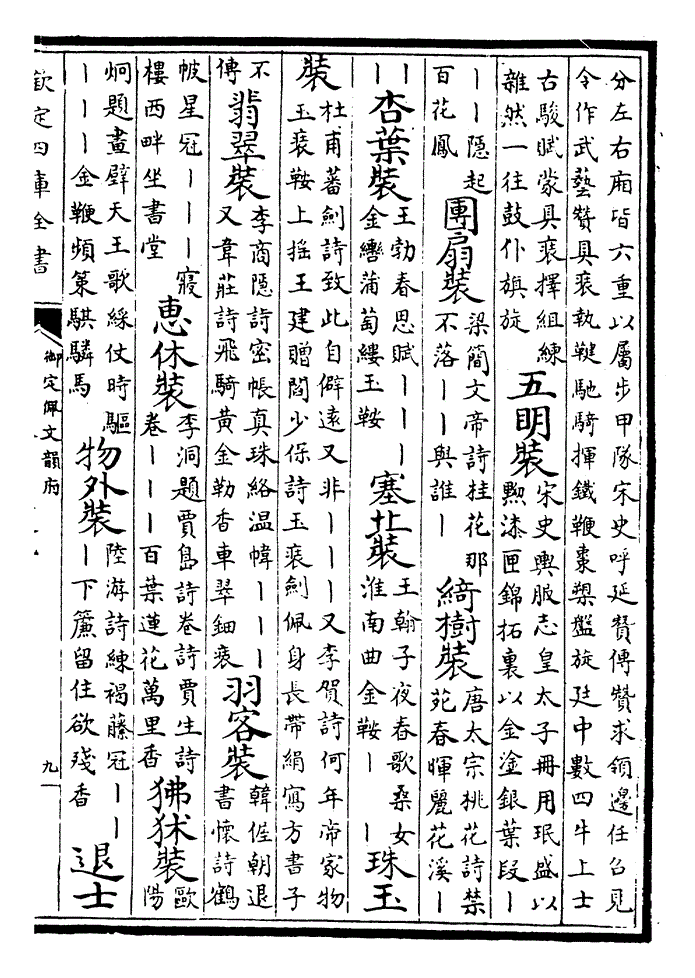 分左右廂皆六重以屬步甲隊宋史呼延贊傳贊求領邊任召見
令作武藝贊具裝執鞬馳騎揮鐵鞭棗槊盤旋廷中數四牛上士
古駿賦蒙具裝擇組練
雜然一往鼓仆旗旋
五明裝
宋史輿服志皇太子冊用珉盛以
黝漆匣錦拓裏以金塗銀葉段丨
丨丨隱起
百花鳳
團扇裝
梁簡文帝詩桂花那
不落丨丨與誰丨
綺樹裝
唐太宗桃花詩禁
苑春暉麗花溪丨
丨
丨
杏葉裝
王勃春思賦丨丨丨
金轡蒲萄縷玉鞍
塞北裝
王翰子夜春歌桑女
淮南曲金鞍丨丨
珠玉
裝
杜甫蕃劍詩致此自僻遠又非丨丨丨又李賀詩何年帝家物
玉裝鞍上搖王建贈閻少保詩玉裝劍佩身長帶絹寫方書子
不
傳
翡翠裝
李商隱詩密帳真珠絡温幃丨丨丨
又韋莊詩飛騎黃金勒香車翠鈿裝
羽客裝
韓偓朝退
書懷詩鶴
帔星冠丨丨丨寢
樓西畔坐書堂
惠休裝
李洞題賈島詩卷詩賈生詩
卷丨丨丨百葉蓮花萬里香
狒狨裝
歐
陽
炯題畫壁天王歌綵仗時驅
丨丨丨金鞭頻策騏驎馬
物外裝
陸游詩練褐藤冠丨丨
丨下簾留住欲殘香
退士
欽定四庫全書
御定佩文韻府
九